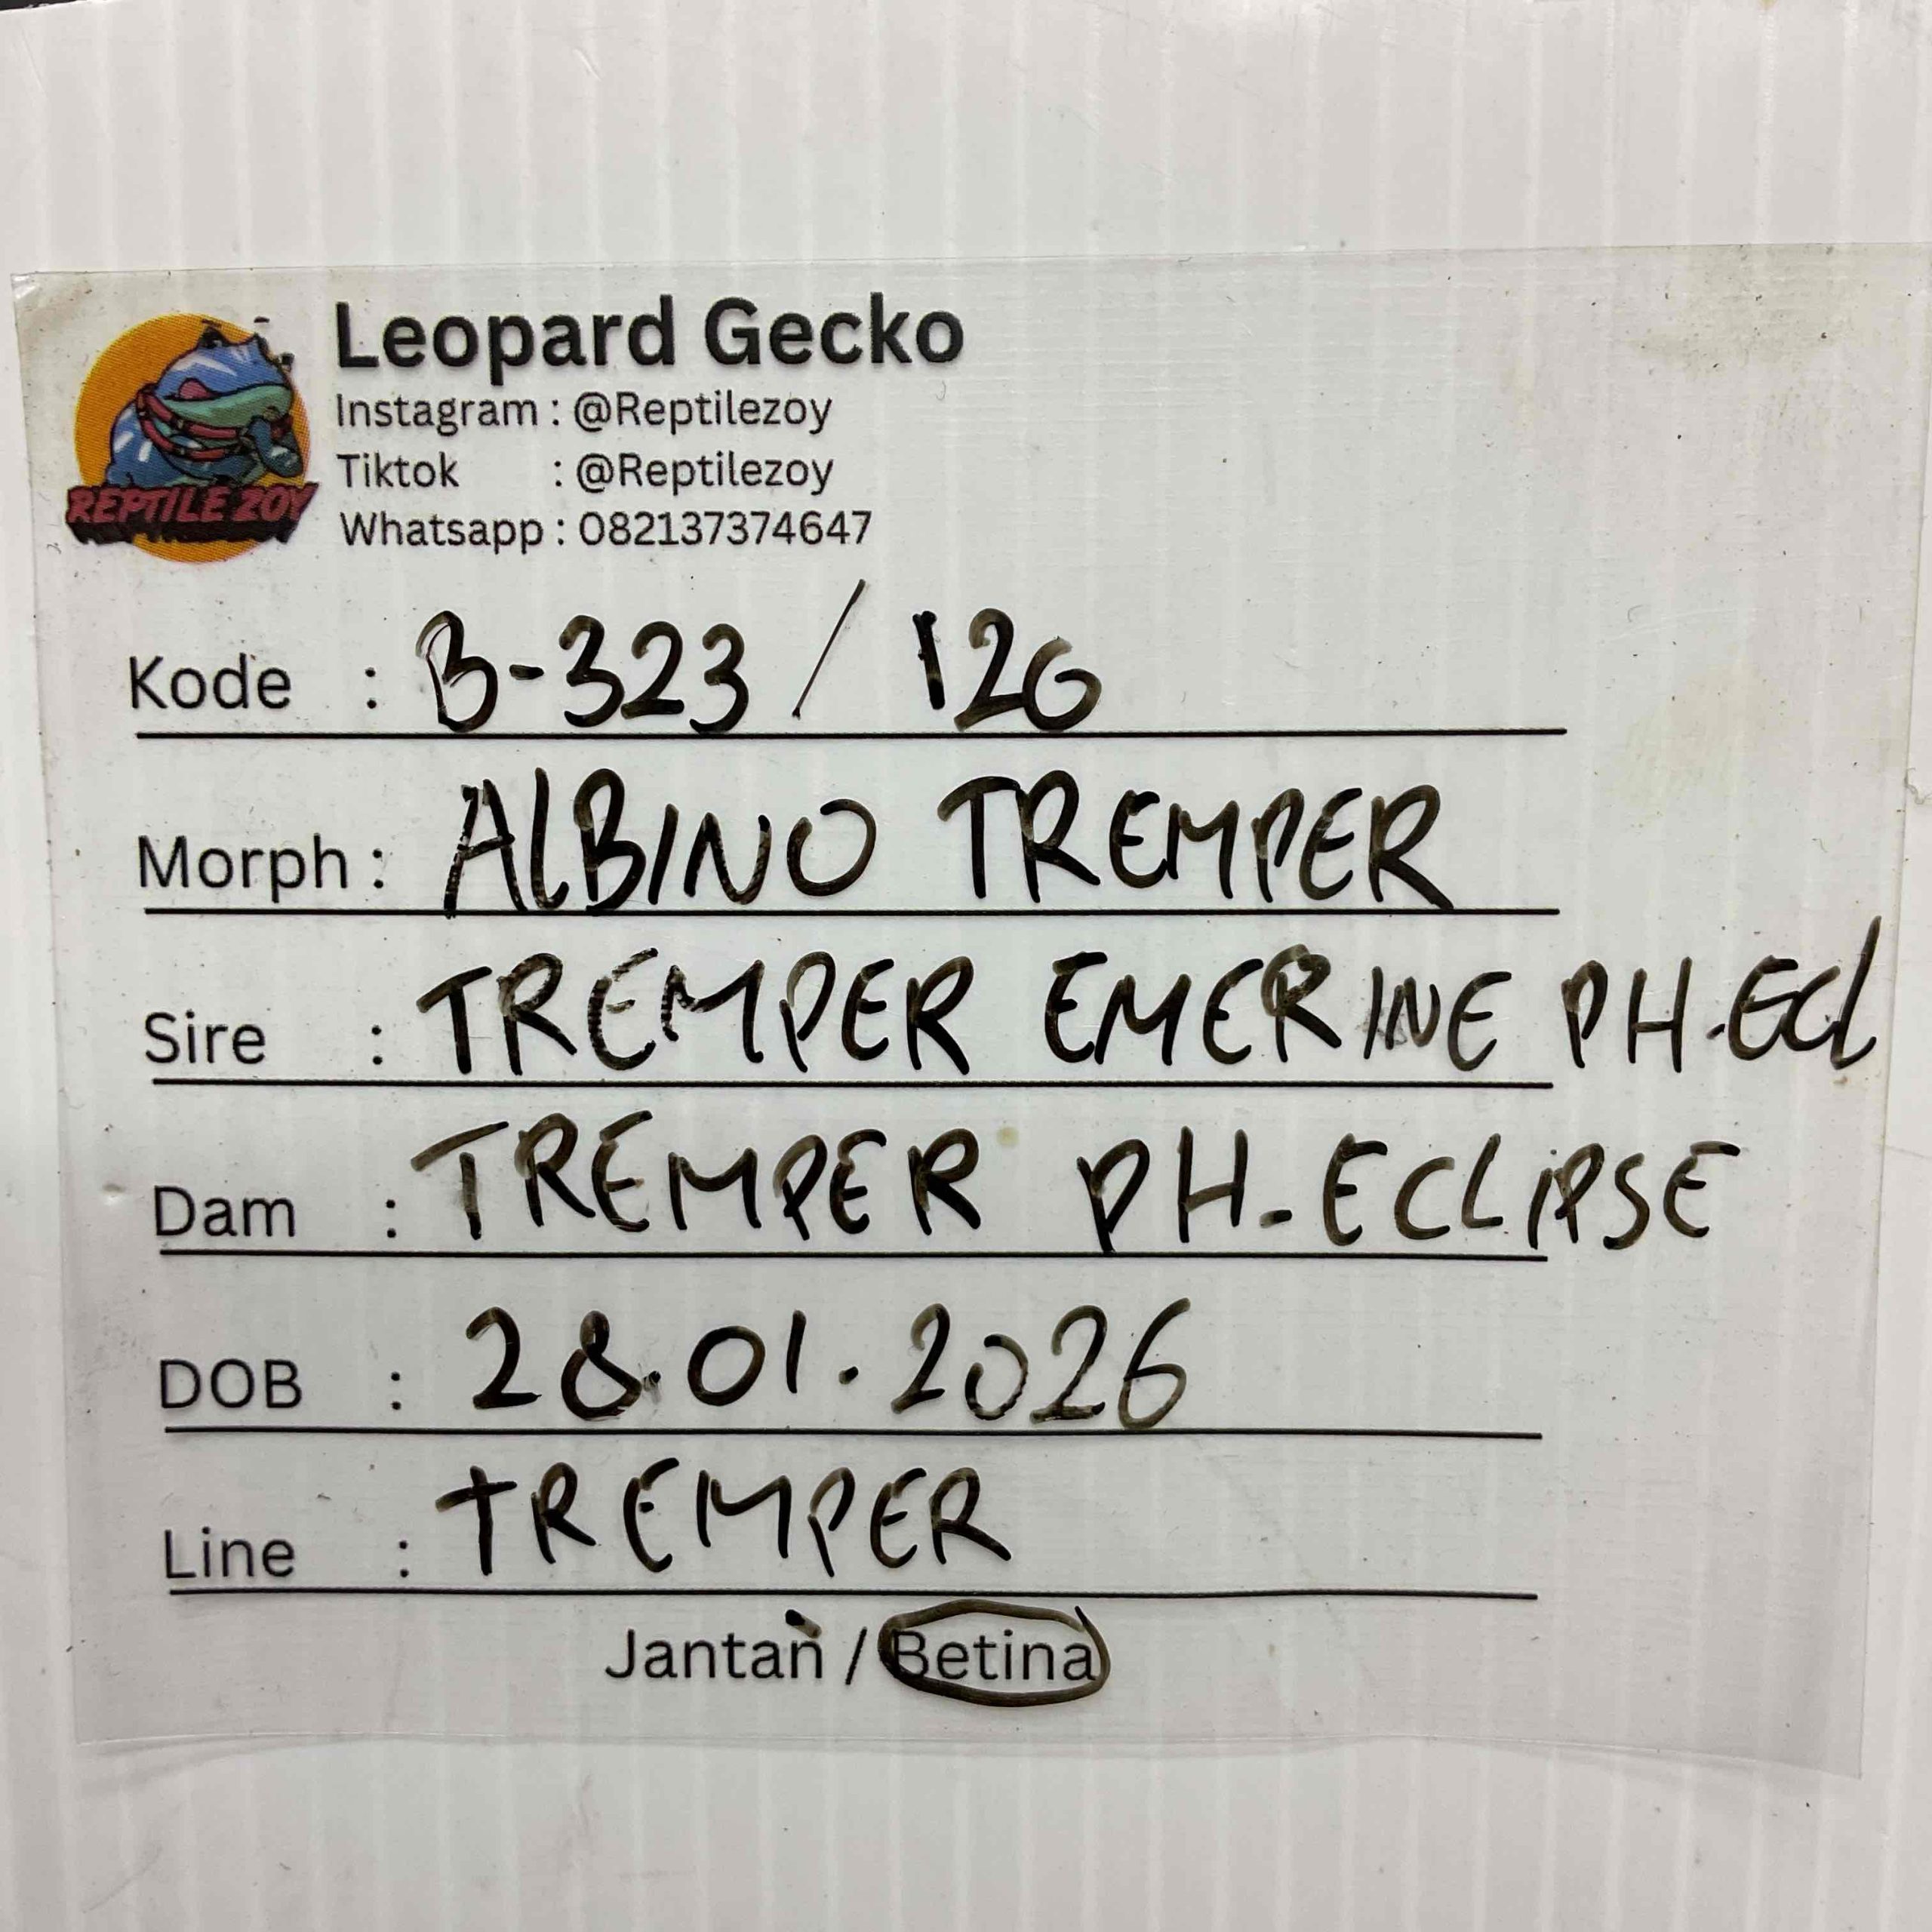 Leopard Gecko
Instagram : @Reptilezoy
Tiktok : @Reptilezoy
REPTILE ZOY
Whatsapp : 082137374647
Kode : B-323 / 12G
Morph : ALBINO TREMPER
Sire : TREMPER EMERINE PH.ECL
Dam : TREMPER PH-ECLIPSE
DOB : 28.01.2026
Line : TREMPER
Jantan / Betina